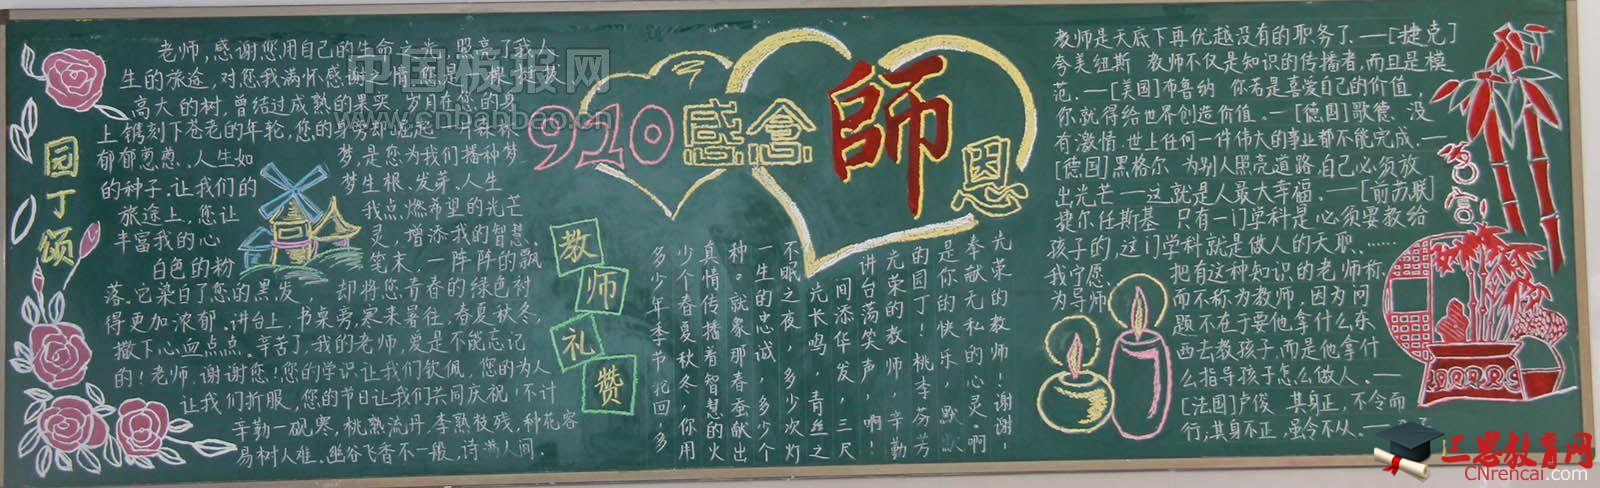 园丁颂
老师,感谢您用自己的生命之光,照亮了我人
生的旅途,对您我满怀感谢之情.您是一棵挺拔
高大的树,曾结过成熟的果实,岁月在您的身
上镌刻下苍老的年轮,您的身旁却崛起一片森林
郁郁葱葱、人生如
梦,是您为我们播种梦
的种子,让我们的
梦生根、发芽、人生
旅途上,您让
我点燃希望的光芒
丰富我的心
灵,增添我的智慧、
白色的粉
笔末,一阵阵的飘
落、它染白了您的黑发, 却将您青春的绿色衬
得更加浓郁.讲台上,书桌旁,寒来暑往,春夏秋冬,
撒下心血点点。辛苦了,我的老师,爱是不能忘记
的!老师,谢谢您!您的学识让我们钦佩,您的为人
让我们折服,您的节日让我们共同庆祝!不计
辛勤一砚寒,桃熟流丹,李熟枝残,种花容
易树人难。幽谷飞香不一般,诗满人间.
中国板报网
www.cnbanbao.cn
910 感念 師恩
教师礼赞
光荣的教师!谢谢,
奉献无私的心灵。啊,
是你的快乐,默默
的园丁!桃李芬芳
光荣的教师,辛勤
讲台荡笑声,啊!
间添华发,三尺
光长鸣,青丝之
不眠之夜,多少次灯
一生的忠诚,多少个
种。就象那春蚕献出
真情传播着智慧的火
少个春夏秋冬,你用
多少年季节轮回,多
教师是天底下再优越没有的职务了.—[捷克]
夸美纽斯 教师不仅是知识的传播者,而且是模
范.—[美国]布鲁纳 你若是喜爱自己的价值,
你就得给世界创造价值。—[德国]歌德、没
有激情.世上任何一件伟大的事业都不能完成.—
[德国]黑格尔 为别人照亮道路,自己必须放
出光芒——这就是人最大幸福.—[前苏联]
捷尔任斯基 只有一门学科是必须要教给
孩子的,这门学科就是做人的天职……
我宁愿
把有这种知识的老师称
为导师
而不称为教师,因为问
题不在于要他拿什么东
西去教孩子,而是他拿什
么指导孩子怎么做人.—
[法国]卢俊 其身正,不令而
行;其身不正,虽令不从。—
名言
三思教育网
CNrencai.com